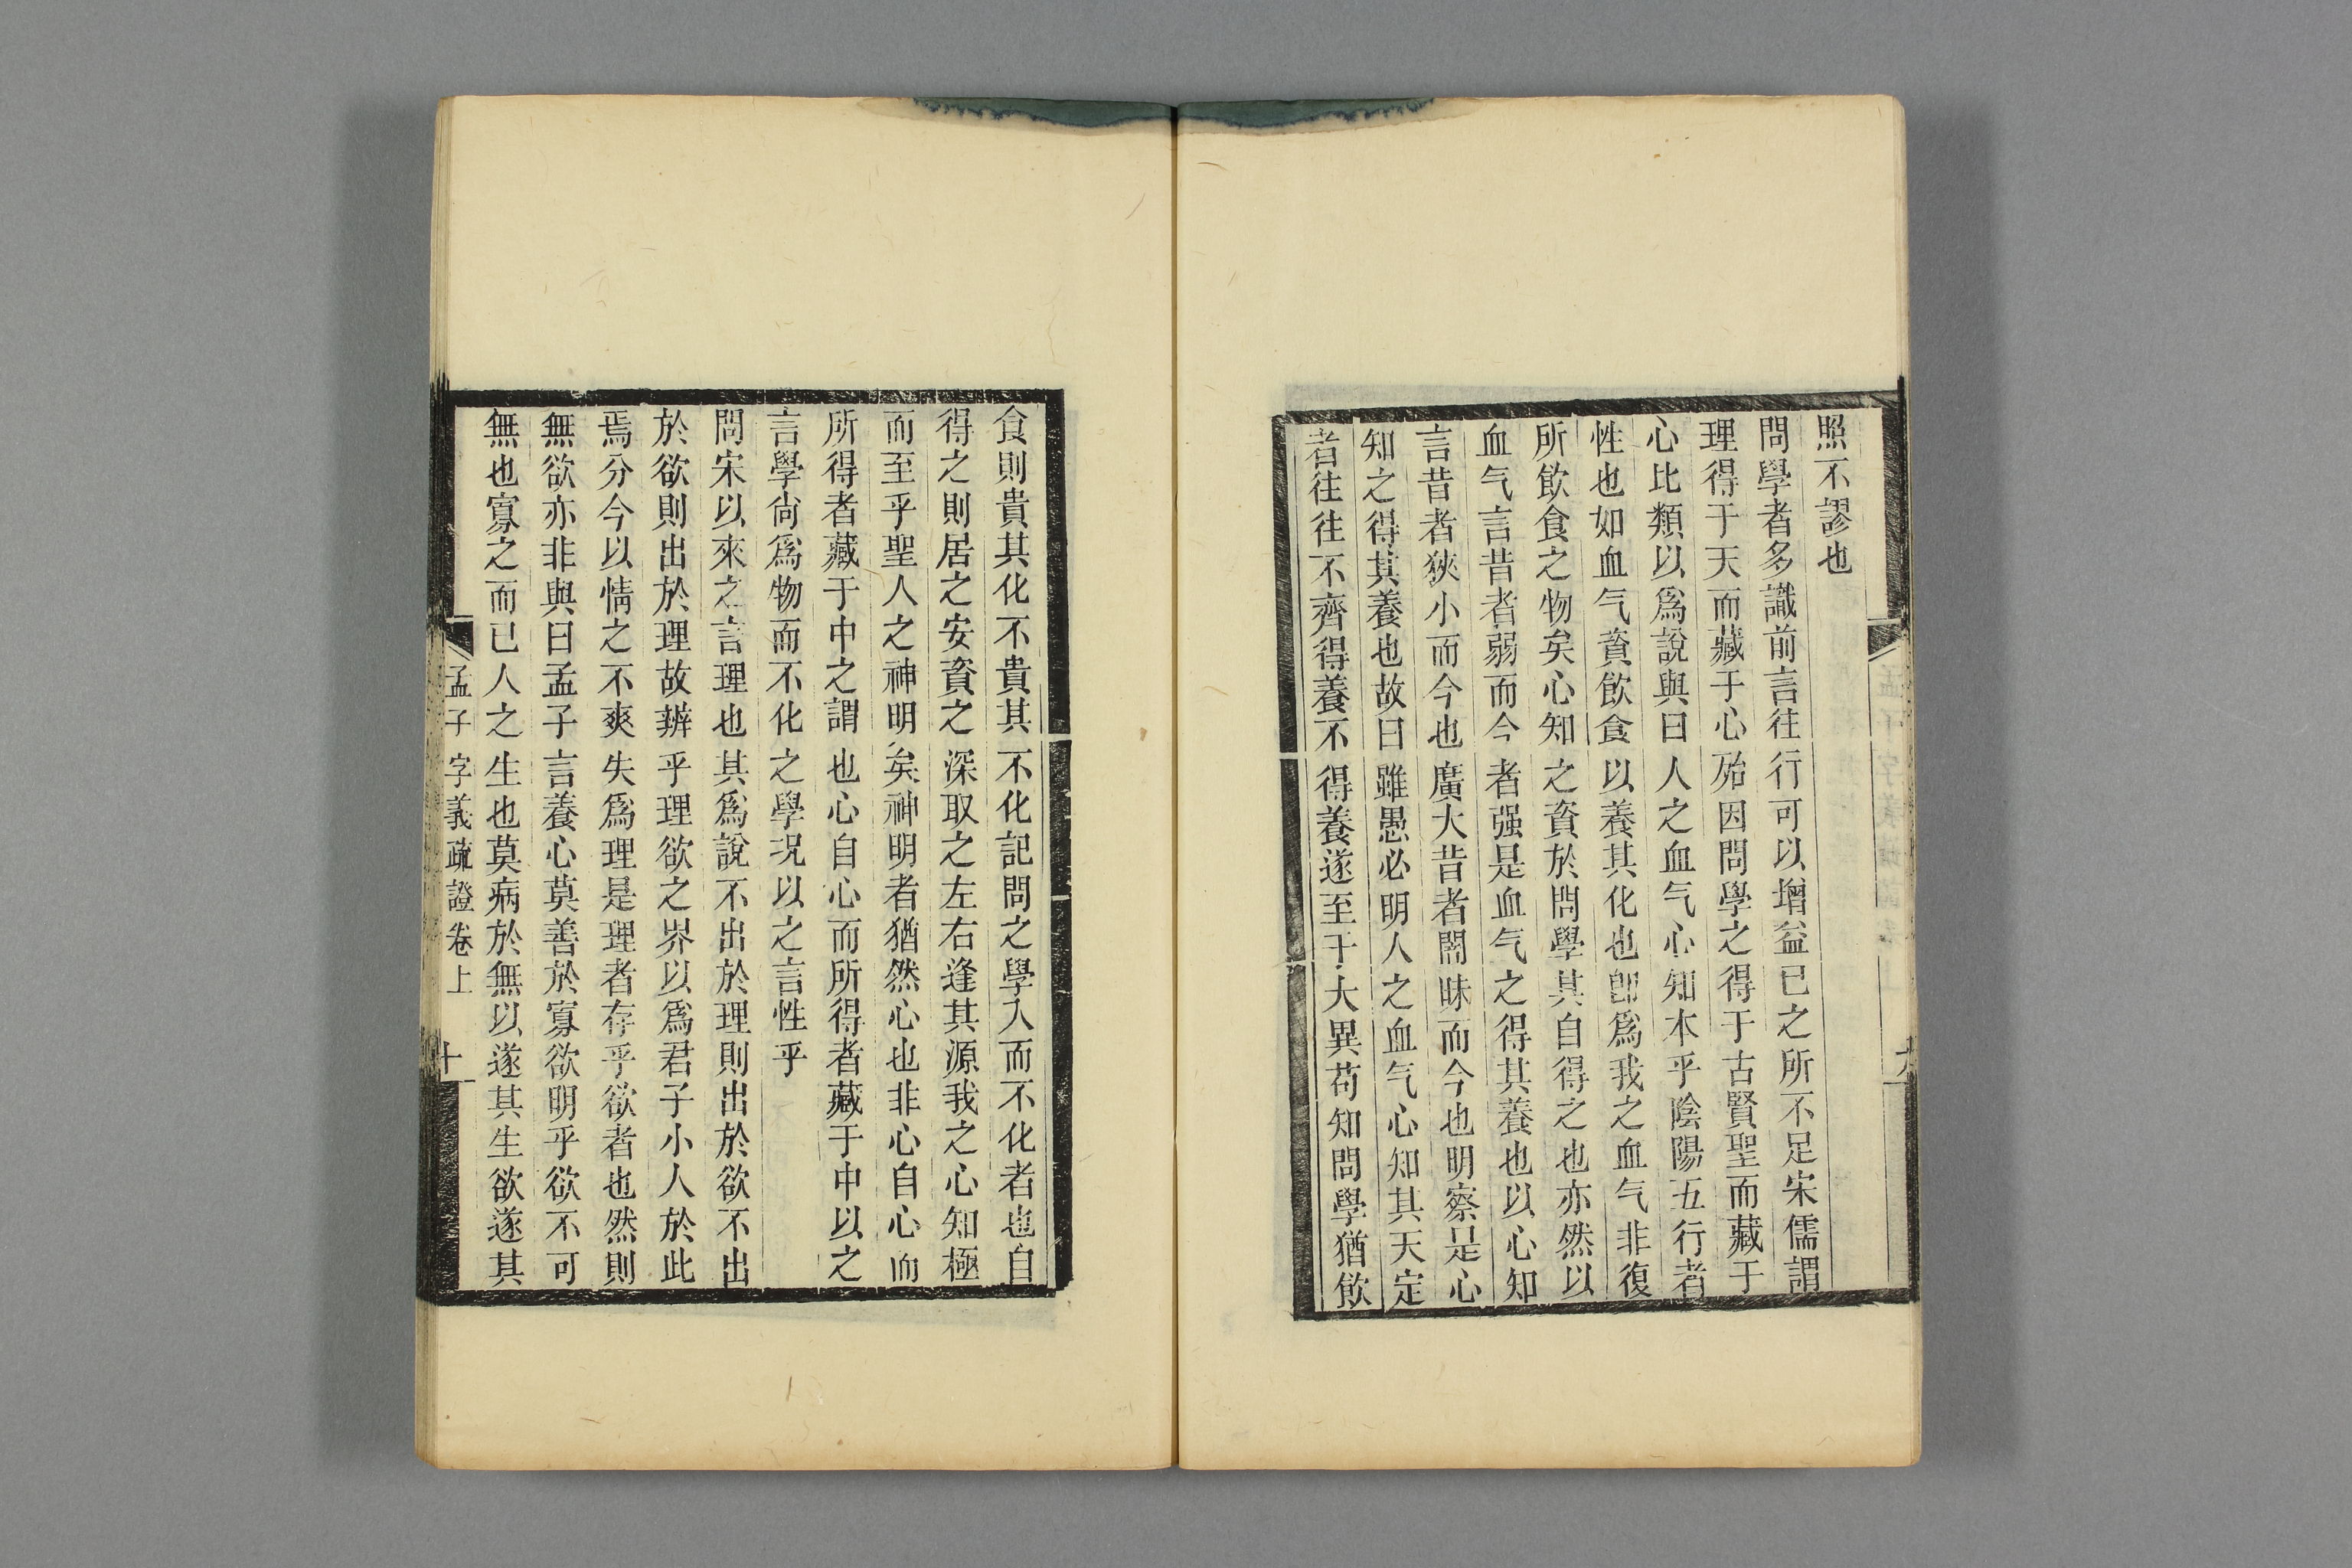 照不謬也
問學者多識前言往行可以增益已之所不足宋儒謂
理得于天而藏于心殆因問學之得于古賢聖而藏于
心比類以爲說與曰人之血气心知本乎陰陽五行者
性也如血气資飲食以養其化也卽爲我之血气非復
所飲食之物矣心知之資於問學其自得之也亦然以
血气言昔者弱而今者强是血气之得其養也以心知
言昔者狹小而今也廣大昔者闇昧而今也明察是心
知之得其養也故曰雖愚必明人之血气心知其天定
者往往不齊得養不得養遂至于大異苟知問學猶飲
食則貴其化不貴其不化記問之學入而不化者也自
得之則居之安資之深取之左右逢其源我之心知極
而至乎聖人之神明矣神明者猶然心也非心自心而
所得者藏于中之謂也心自心而所得者藏于中以之
言學尙爲物而不化之學況以之言性乎
問宋以來之言理也其爲說不出於理則出於欲不出
於欲則出於理故辨乎理欲之界以爲君子小人於此
焉分今以情之不爽失爲理是理者存乎欲者也然則
無欲亦非與曰孟子言養心莫善於寡欲明乎欲不可
無也寡之而已人之生也莫病於無以遂其生欲遂其
孟子字義疏證卷上
十